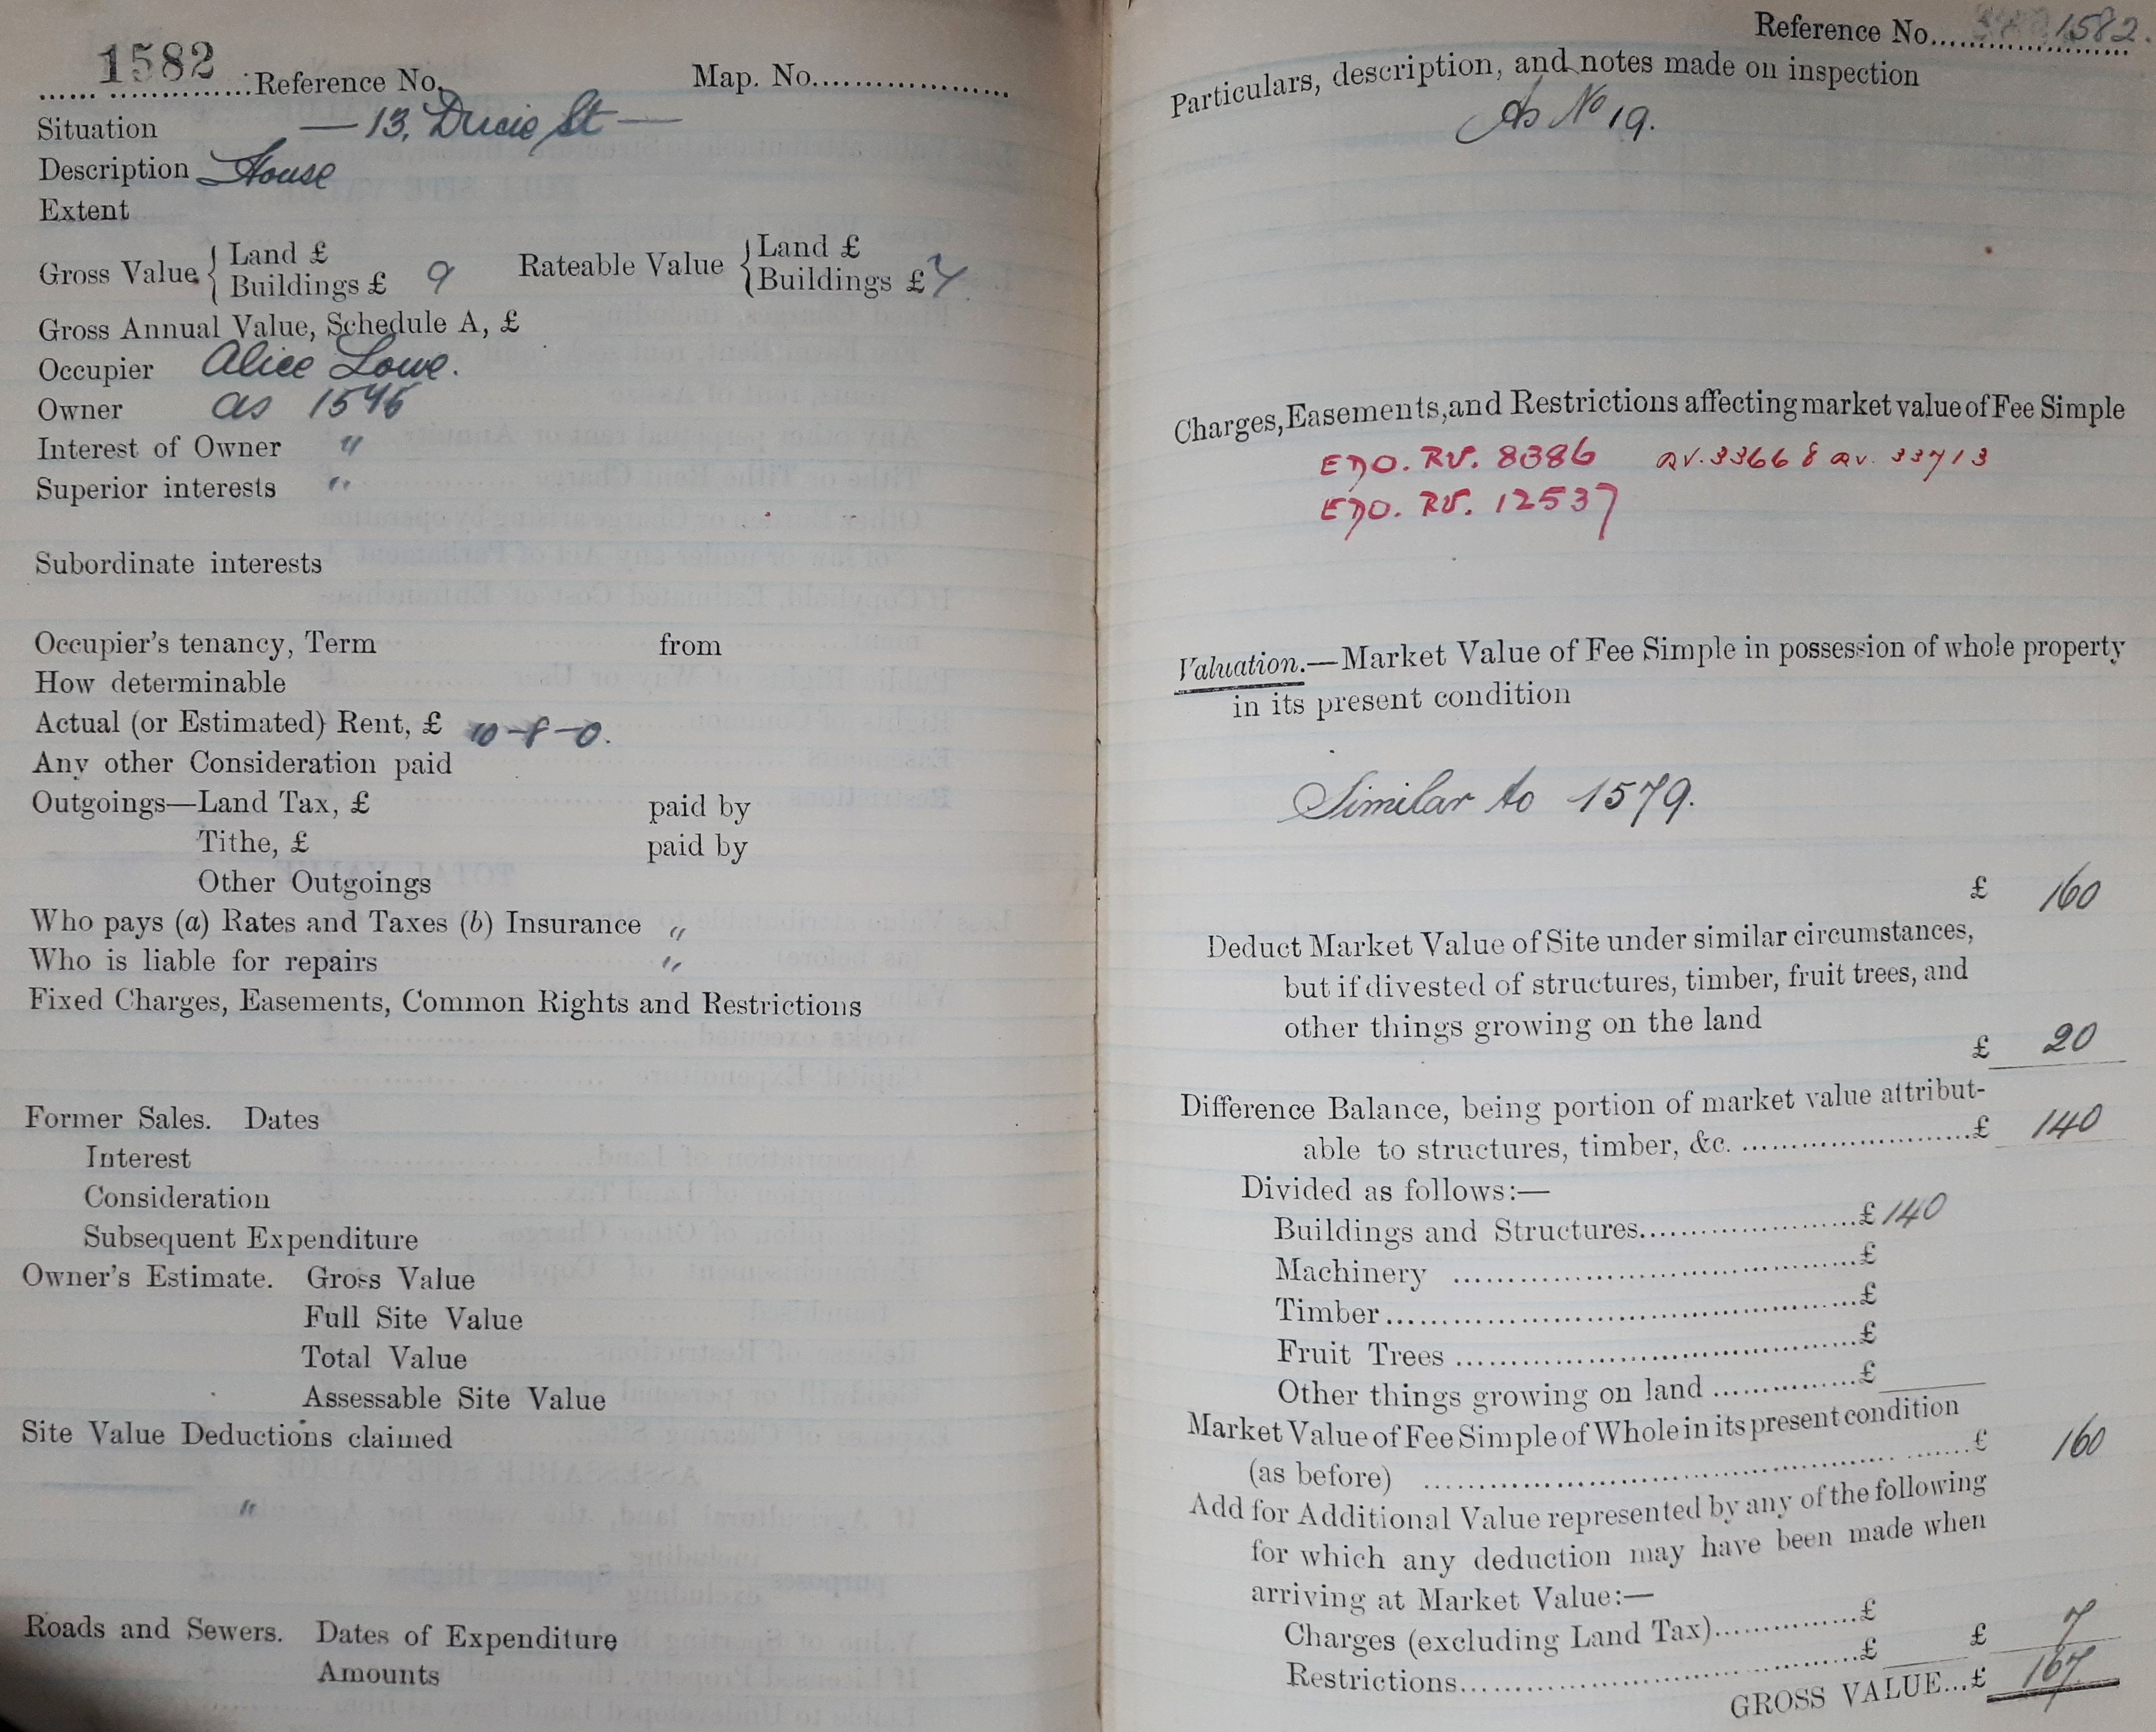 1582 Reference No. Map. No.
Situation — 13, Ducie St —
Description House
Extent
Gross Value { Land £
Buildings £ 9
Rateable Value { Land £
Buildings £ 7
Gross Annual Value, Schedule A, £
Occupier Alice Lowe.
Owner as 1546
Interest of Owner "
Superior interests "
Subordinate interests
Occupier's tenancy, Term from
How determinable
Actual (or Estimated) Rent, £ 10-8-0.
Any other Consideration paid
Outgoings—Land Tax, £ paid by
Tithe, £ paid by
Other Outgoings
Who pays (a) Rates and Taxes (b) Insurance "
Who is liable for repairs "
Fixed Charges, Easements, Common Rights and Restrictions
Former Sales. Dates
Interest
Consideration
Subsequent Expenditure
Owner's Estimate. Gross Value
Full Site Value
Total Value
Assessable Site Value
Site Value Deductions claimed
"
Roads and Sewers. Dates of Expenditure
Amounts
Reference No. 1582.
Particulars, description, and notes made on inspection
As No 19.
Charges, Easements, and Restrictions affecting market value of Fee Simple
RV. 8386 RV. 3366 & RV. 33713
RV. 12537
Valuation.—Market Value of Fee Simple in possession of whole property
in its present condition
Similar to 1579.
£ 160
Deduct Market Value of Site under similar circumstances,
but if divested of structures, timber, fruit trees, and
other things growing on the land
£ 20
Difference Balance, being portion of market value attribut-
able to structures, timber, &c. £ 140
Divided as follows:—
Buildings and Structures £ 140
Machinery £
Timber £
Fruit Trees £
Other things growing on land £
Market Value of Fee Simple of Whole in its present condition
(as before) £ 160
Add for Additional Value represented by any of the following
for which any deduction may have been made when
arriving at Market Value:—
Charges (excluding Land Tax) £
Restrictions £ £ 7
GROSS VALUE...£ 167